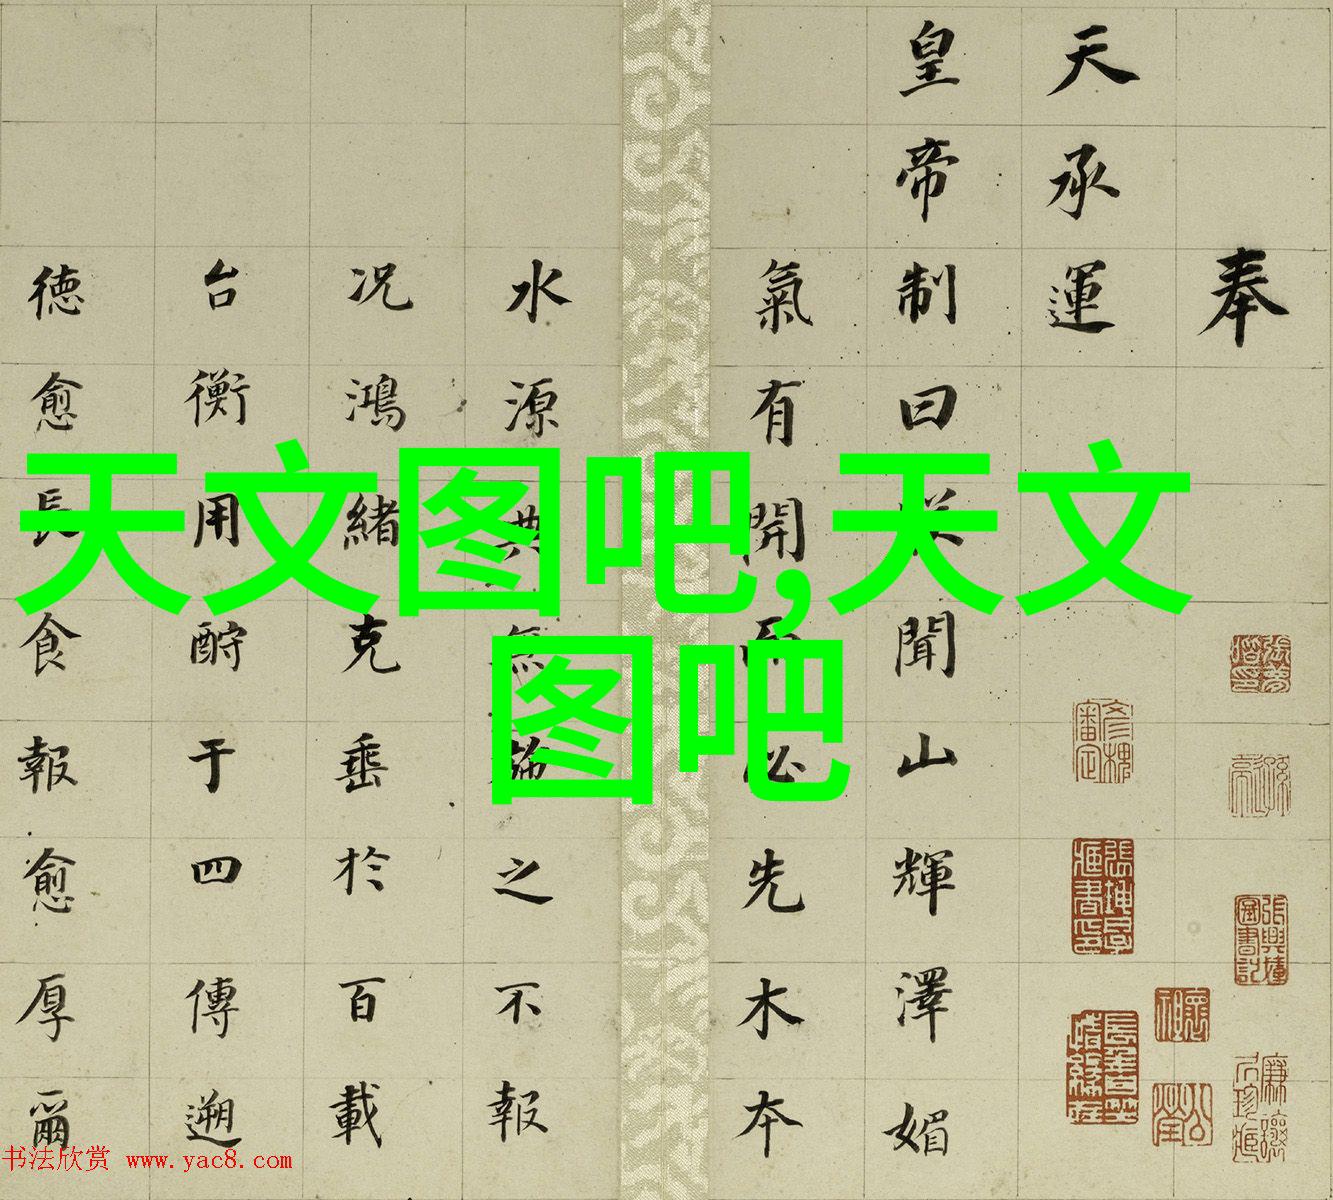 天文图吧,天文
图吧
奉
天承運
皇帝制曰聞山輝澤媚
氣有開必先木本
水源典無之不報
况鴻緒克垂於百載
台衡用酧于四傳遡
德愈長食報愈厚爾
书法欣赏 www.yac8.com